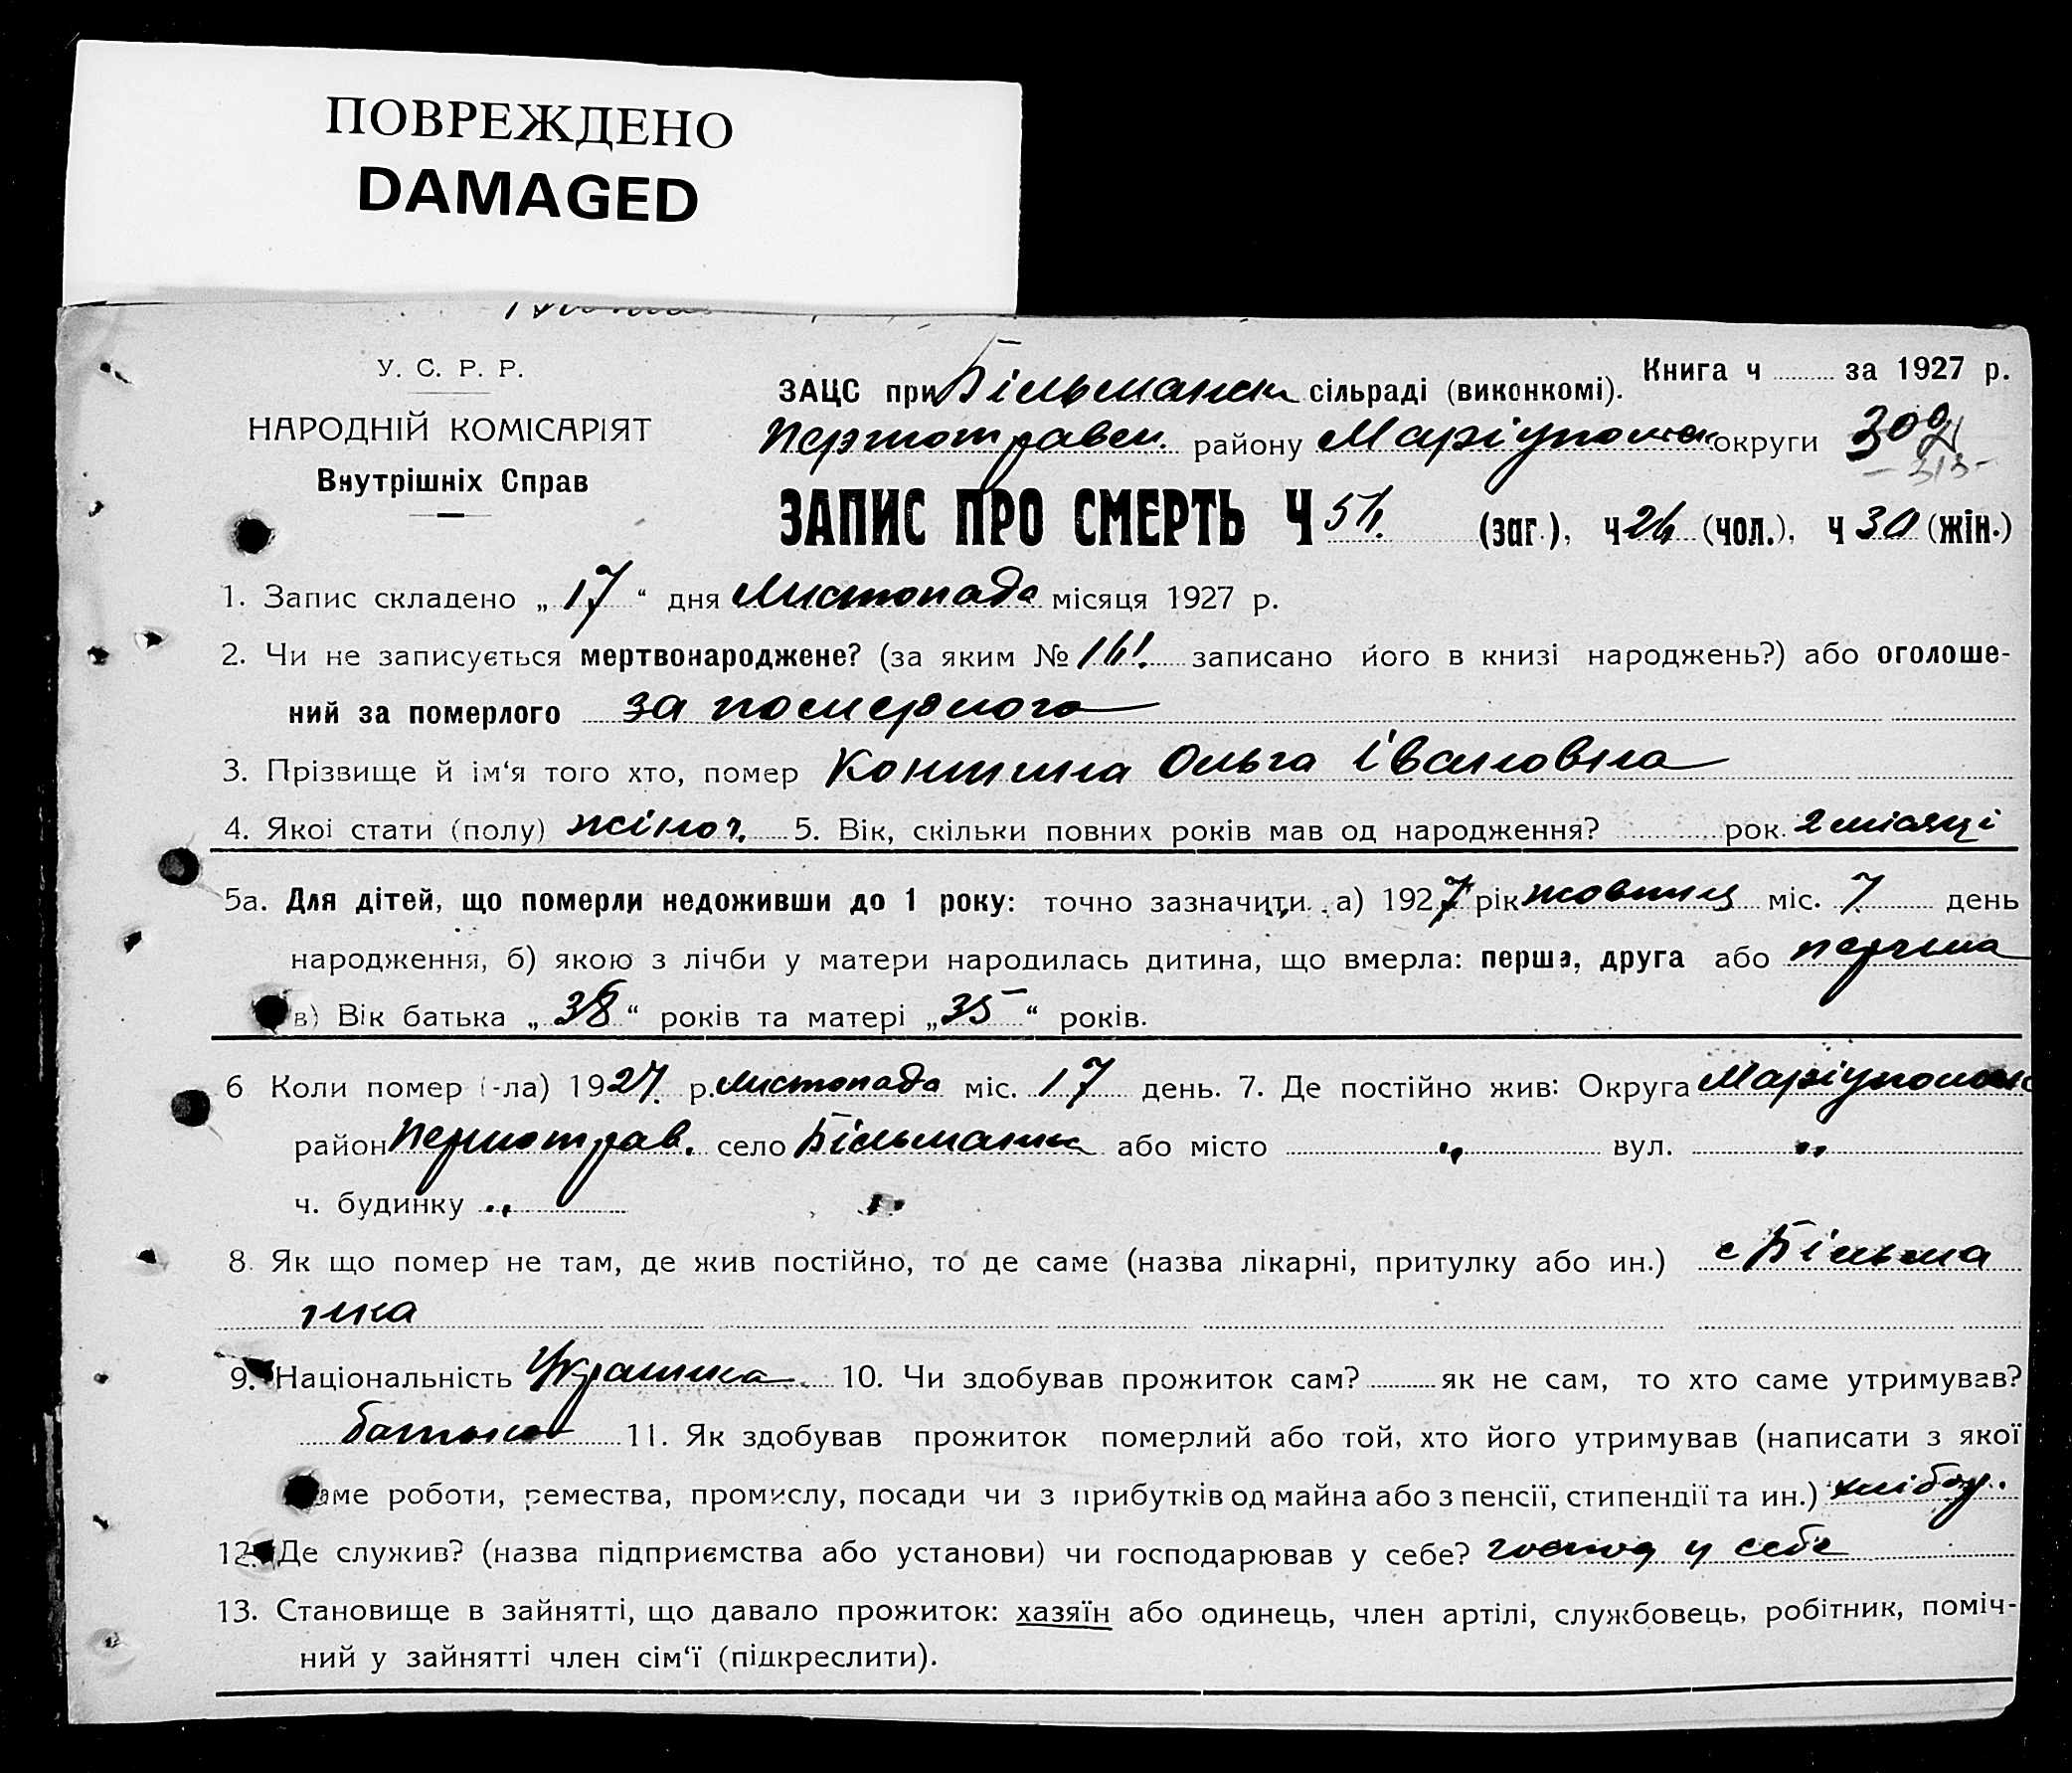 ПОВРЕЖДЕНО
DAMAGED
У. С. Р. Р.
НАРОДНІЙ КОМІСАРІЯТ
Внутрішніх Справ
Книга ч за 1927 р.
ЗАЦС при Більманськ сільраді (виконкомі).
Першотравен. району Маріупольск округи 309
- 313 -
ЗАПИС ПРО СМЕРТЬ Ч 54. (заг.), ч 24 (чол.), ч 30 (жін.)
1. Запис складено „ 17 “ дня Листопада місяця 1927 р.
2. Чи не записується мертвонароджене? (за яким № 141. записано його в книзі народжень?) або оголоше-
ний за померлого за померлого
3. Прізвище й ім‘я того хто, помер Ольга Івановна
4. Якоі стати (полу) жіноч. 5. Вік, скільки повних років мав од народження? рок. 2 місяці
5а. Для дітей, що померли недоживши до 1 року: точно зазначити а) 1927 рік жовтня міс. 7. день
народження, б) якою з лічби у матери народилась дитина, що вмерла: перша, друга або перша
в) Вік батька „ 38 “ років та матері „ 35 “ років.
6 Коли помер (-ла) 1927. р. листопада міс. 17 день. 7. Де постійно жив: Округа Маріупольск
район Першотрав. село Більманка або місто „ вул. „
ч. будинку „
8. Як що помер не там, де жив постійно, то де саме (назва лікарні, притулку або ин.) с Більма
нка
9. Національність Украинка 10. Чи здобував прожиток сам? як не сам, то хто саме утримував?
батько 11. Як здобував прожиток померлий або той, хто його утримував (написати з якої
саме роботи, ремества, промислу, посади чи з прибутків од майна або з пенсії, стипендії та ин.) хлібор.
12. Де служив? (назва підприємства або установи) чи господарював у себе? господ у себе
13. Становище в зайнятті, що давало прожиток: хазяїн або одинець, член артілі, службовець, робітник, поміч-
ний у зайнятті член сім‘ї (підкреслити).